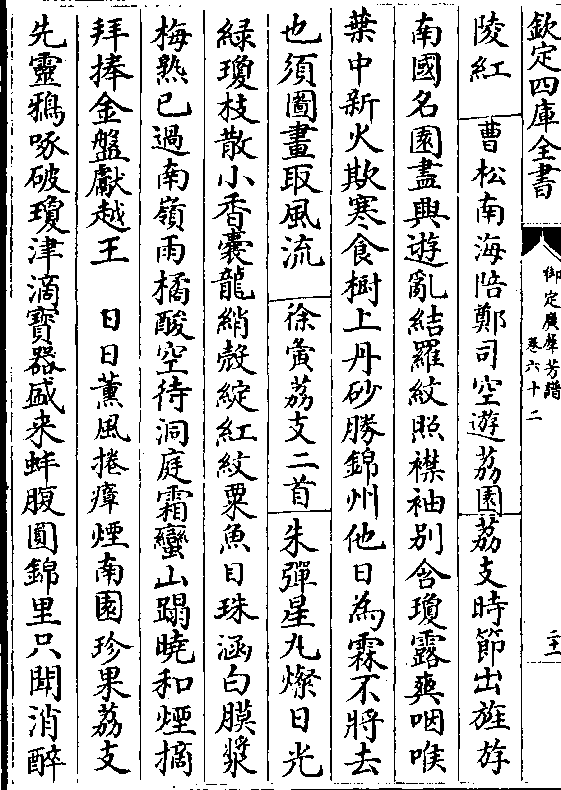 欽定四庫全書
御定廣羣芳譜
卷六十二
二十
陵紅 曹松南海陪鄭司空遊荔園荔支時節出旌斿
南國名園盡興遊亂結羅紋照襟袖別含瓊露爽咽喉
葉中新火欺寒食樹上丹砂勝錦州他日為霖不將去
也須圖畫取風流 徐夤荔支二首 朱彈星丸燦日光
綠瓊枝散小香囊龍綃殼綻紅紋粟魚目珠涵白膜漿
梅熟已過南嶺雨橘酸空待洞庭霜蠻山蹋曉和煙摘
拜捧金盤獻越王 日日薰風捲瘴煙南園珍果荔支
先靈鴉啄破瓊津滴寶器盛来蚌腹圓錦里只聞消醉